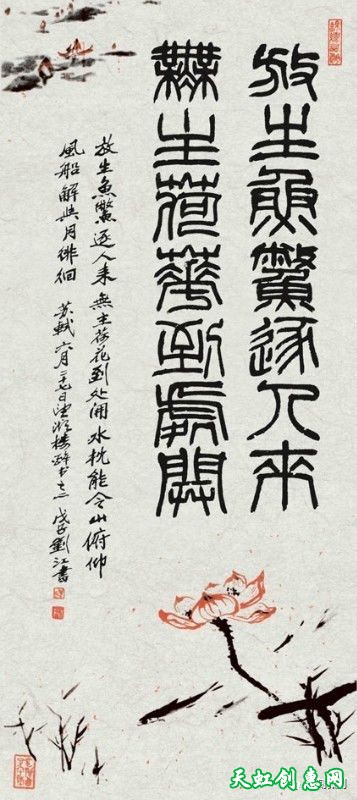 放生魚鱉逐人來
無主荷花到處開
放生魚鱉逐人来無主荷花到处開水枕能令山俯仰
風船解與月徘徊 苏轼六月二十七日望湖楼醉书之二 戊子劉江書
天虹创惠网